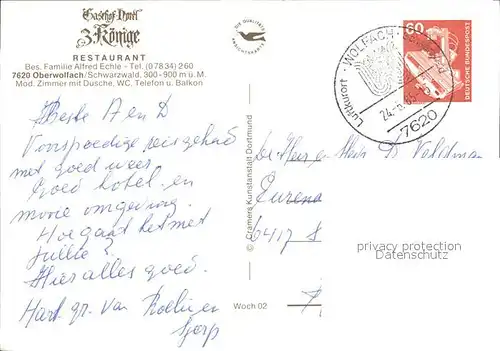 Gasthof-Hotel
3 Könige
RESTAURANT
Bes. Familie Alfred Echle - Tel. (07834) 260
7620 Oberwolfach/Schwarzwald, 300-900 m ü. M.
Mod. Zimmer mit Dusche, WC, Telefon u. Balkon
Beste A en D
Voorspoedige reis gehad
met goed weer
Goed hotel en
mooie omgeving.
Hoe gaat het met
jullie?
Hier alles goed.
Hart. gr. van
DIE QUALITÄTS
ANSICHTSKARTE
© Cramers Kunstanstalt Dortmund
Woch 02
Luftkurort · WOLFACH
24.-6.
7620
60
DEUTSCHE BUNDESPOST
De Heer en
6417
privacy protection
Datenschutz